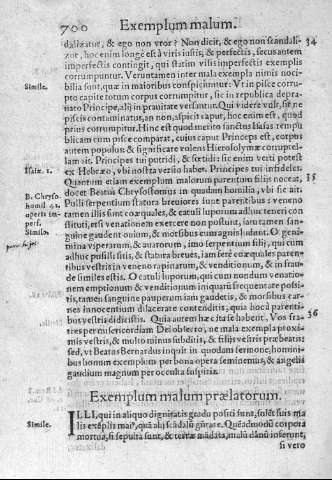 700
Exemplum malum.
dalizatur, & ego non vror? Non dicit, & ego non scandali-
34
zor, hoc enim longe est à viris iustis, & perfectis, secus autem
imperfectis contingit, qui statim vilis imperfectis exemplis
corrumpuntur. Veruntamen inter mala exempla nimis noci-
Simile.
bilia sunt, quæ in maioribus conspiciuntur: Vt in pisce corru-
pto capite totum corpus corrumpitur, sic in republica depra-
uato Principe, alij in prauitate versantur. Qui videre vult, sit ne
piscis contaminatus, an non, aspicit caput, hoc enim est, quod
prius corrumpitur. Hinc est quod mento sanctus Isaias rempu
blicam cum pisce comparat, cuius caput Princeps est, corpus
autem populus & significare volens Hierosolymæ corruptel-
lam ait. Principes tui putridi, & fœtidi: sic enim verti potest
Isaiæ. 1.
ex Hebræo, vbi nostra versio habet. Principes tui infideles.
Quantum etiam exemplum malorum parentum filiis noceat,
35
docet Beatus Chrysostomus in quadam homilia, vbi sic ait.
B. Chryso.
homil. 42.
operis im-
perf.
Simile.
Pulli serpentium statura breuiores sunt parentibus: veneno
tamen illis sunt coæquales, & catuli luporum adhuc teneri con
stituti, etsi venationem exercere non possunt, iam tamen san-
guine gaudent ouium, & morsibus eum agnis ludunt. O geni-
mina viperarum, & auarorum, imo serpentium filij, qui cum
adhuc pusilli sitis, & statura breues, iam ferè coæquales paren-
tibus vestris in veneno rapinarum, & venditionum, & in frau-
de similes estis. O catuli luporum, qui cum nondum venatio-
nem emptionum & venditionum iniquarum frequentare possi-
tis, tamen sanguine pauperum iam gaudetis, & morsibus car-
nes innocentium dilacerare contenditis, quia hoc à parenti-
bus vestris didicistis. Quia autem hæc ita se habent. Vos fra-
36
tres per misericordiam Dei obsecro, ne mala exempla proxi-
mis vestris, & multo minus subditis, & filijs vestris præbeatis:
sed, vt Beatus Bernardus inquit in quodam sermone, homini-
bus bonum exemplum per bona opera seminemus, & angelis
gaudium magnum per occulta suspiria.
Exemplum malum prælatorum.
ILLI, qui in aliquo dignitatis gradu positi sunt, solét suis ma
Simile.
lis exéplis maius, quã alij scãdalũ gñare. Quéadmodũ corpora
mortua, si sepulta sunt, & terræ mãdata, malũ dãnũ inferunt,
si vero